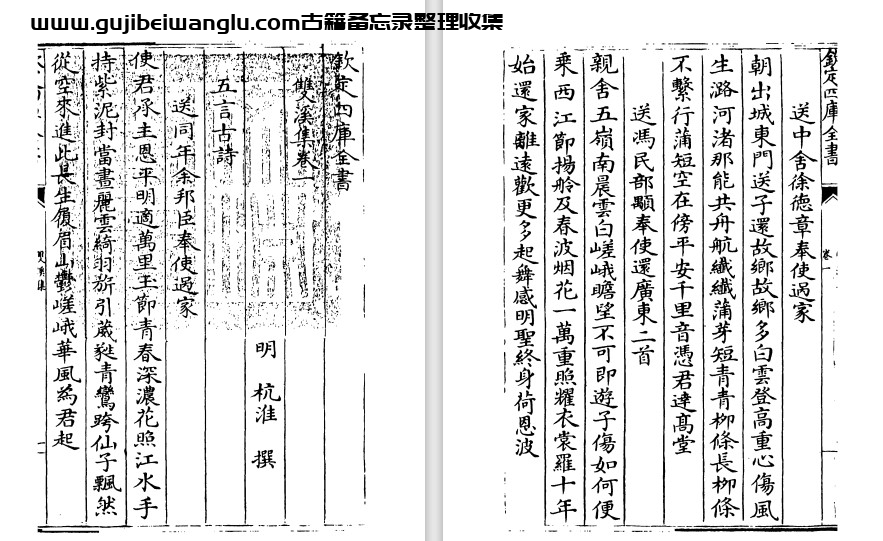 www.gujibeiwanglu.com古籍备忘录整理收集
欽定四庫全書
雙溪集卷一
明 杭淮 撰
五言古詩
送同年余邦臣奉使過家
使君承主恩平明適萬里玉節青春深濃花照江水手
持紫泥封當晝麗雲綺羽旂引葳蕤青鸞跨仙子飄然
從空來進此長生履眉山鬱嵯峨華風為君起
欽定四庫全書
卷一
送中舍徐德章奉使過家
朝出城東門送子還故鄉故鄉多白雲登高重心傷風
生潞河渚那能共舟航纖纖蒲芽短青青柳條長柳條
不繫行蒲短空在傍平安千里音憑君達髙堂
送馮民部顒奉使還廣東二首
親舍五嶺南晨雲白嵯峨瞻望不可即遊子傷如何便
乗西江節揚舲及春波烟花一萬重照耀衣裳羅十年
始還家離遠歡更多起舞感明聖終身荷恩波